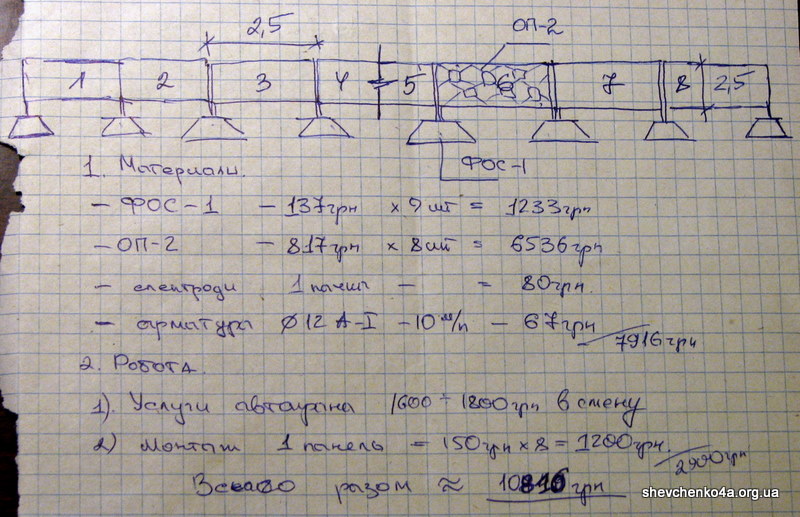 2,5 ОП-2
1 2 3 4 5 6 7 8 2,5
ФОС-1
1. Материали.
- ФОС-1 - 137грн х 9 шт = 1233грн
- ОП-2 - 817грн х 8шт = 6536грн
- електроди 1 пачка - = 80грн.
- арматура Ø12 А-I - 10 м/п - 67грн
7916грн
2. Робота.
1). Услуги автокрана 1600 ÷ 1800грн в смену
2) Монтаж 1 панель = 150грн х 8 = 1200грн.
2900грн
Всього разом ≈ 10816грн
shevchenko4a.org.ua